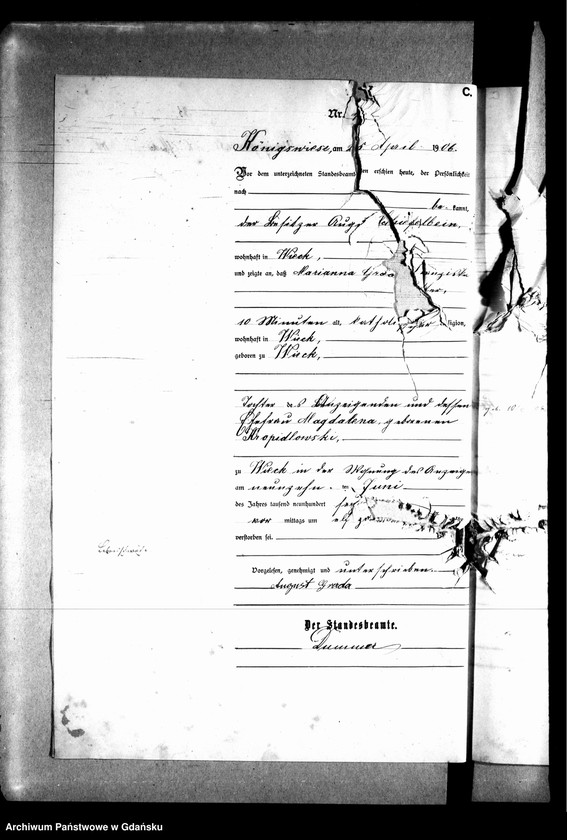 C.
Nr.
Königswiese, am April 1906.
Vor dem unterzeichneten Standesbeamten erschien heute, der Persönlichkeit
nach
be kannt,
der Besitzer August
wohnhaft in Wieck,
und zeigte an, daß Marianna
10 Minuten alt, katholischer Religion,
wohnhaft in Wieck,
geboren zu Wieck,
Tochter des Anzeigenden und dessen
Ehefrau Magdalena, geborenen
Kropidlowski,
zu Wieck in der Wohnung des Anzeigen
am neunzehn Juni
des Jahres tausend neunhundert
vor mittags um elf
verstorben sei.
Vorgelesen, genehmigt und unterschrieben.
August Grada
Der Standesbeamte.
Archiwum Państwowe w Gdańsku